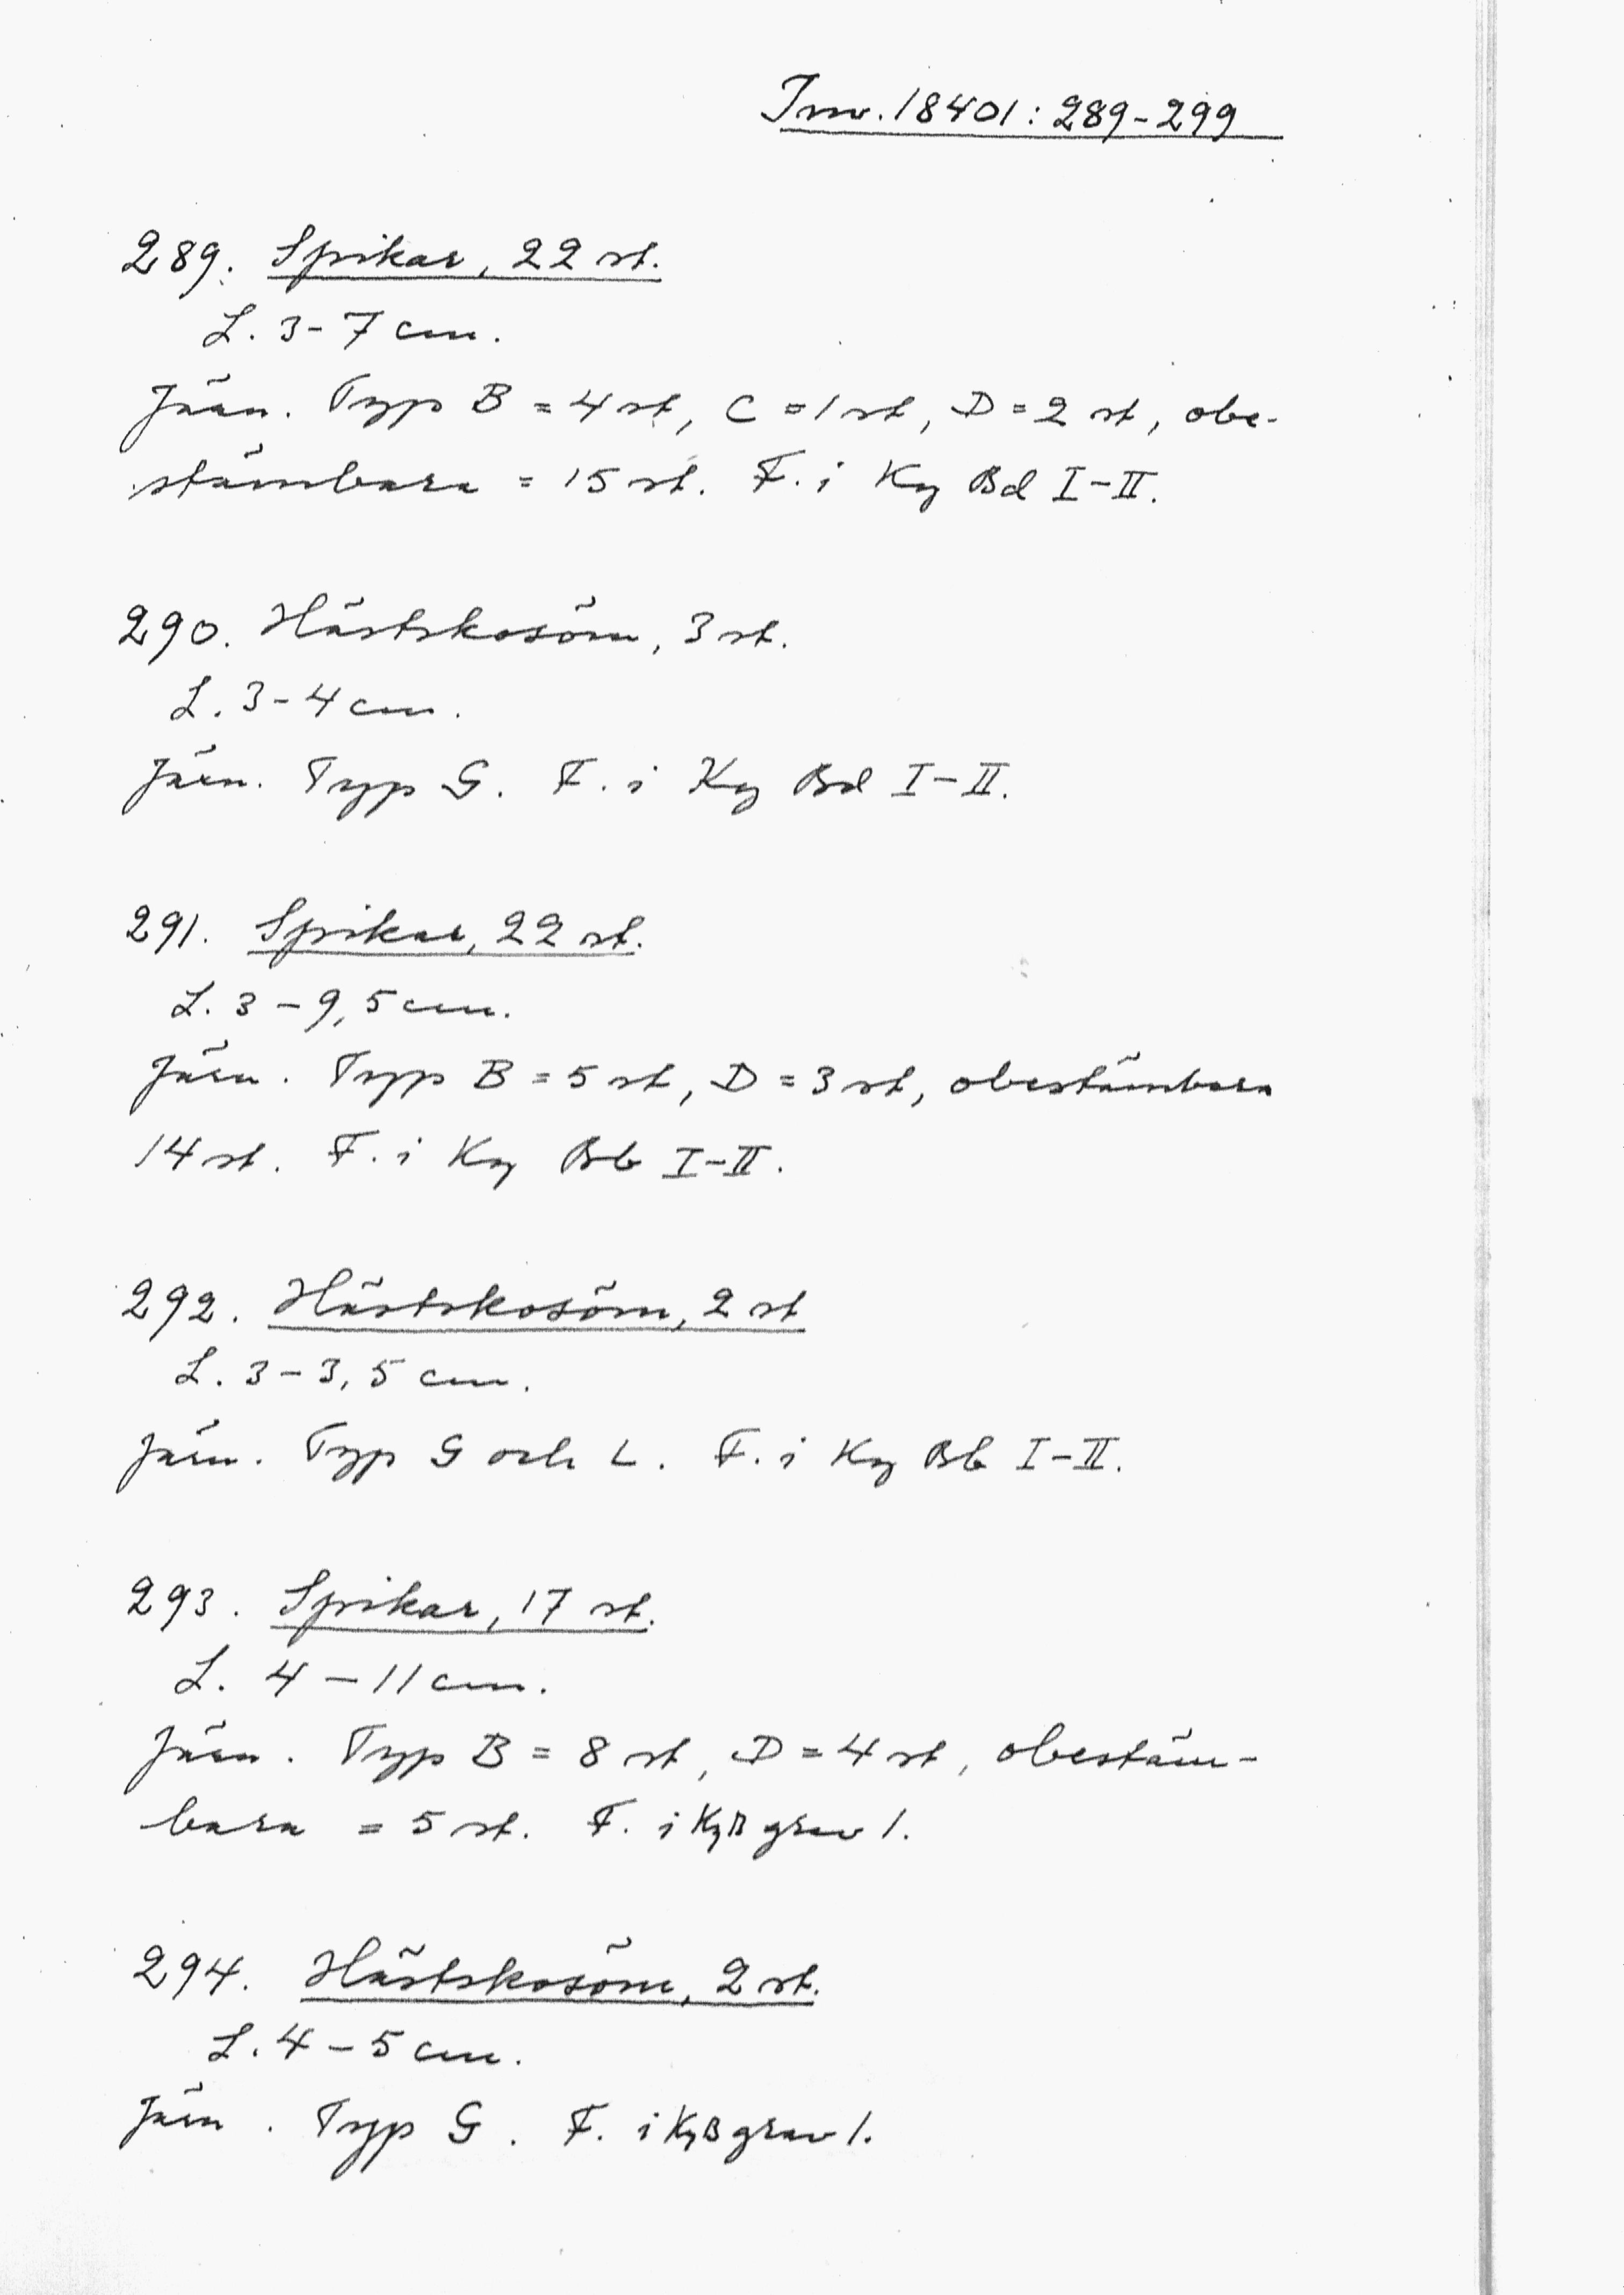 Inv. 18401: 289-299
289. Spikar, 22 st.
L. 3-7 cm.
Järn. Typ B = 4 st, C = 1 st, D = 2 st, obe-
stämbara = 15 st. F. i Ky Bd I-II.
290. Hästskosöm, 3 st.
L. 3-4 cm.
Järn. Typ G. F. i Ky Bd I-II.
291. Spikar, 22 st.
L. 3-9,5 cm.
Järn. Typ B = 5 st, D = 3 st, obestämbara
14 st. F. i Ky Bb I-II.
292. Hästskosöm, 2 st
L. 3-3,5 cm.
Järn. Typ G och L. F. i Ky Bb I-II.
293. Spikar, 17 st.
L. 4-11 cm.
Järn. Typ B = 8 st, D = 4 st, obestäm-
bara = 5 st. F. i KyB grav 1.
294. Hästskosöm, 2 st.
L. 4-5 cm.
Järn. Typ G. F. i KyB grav 1.